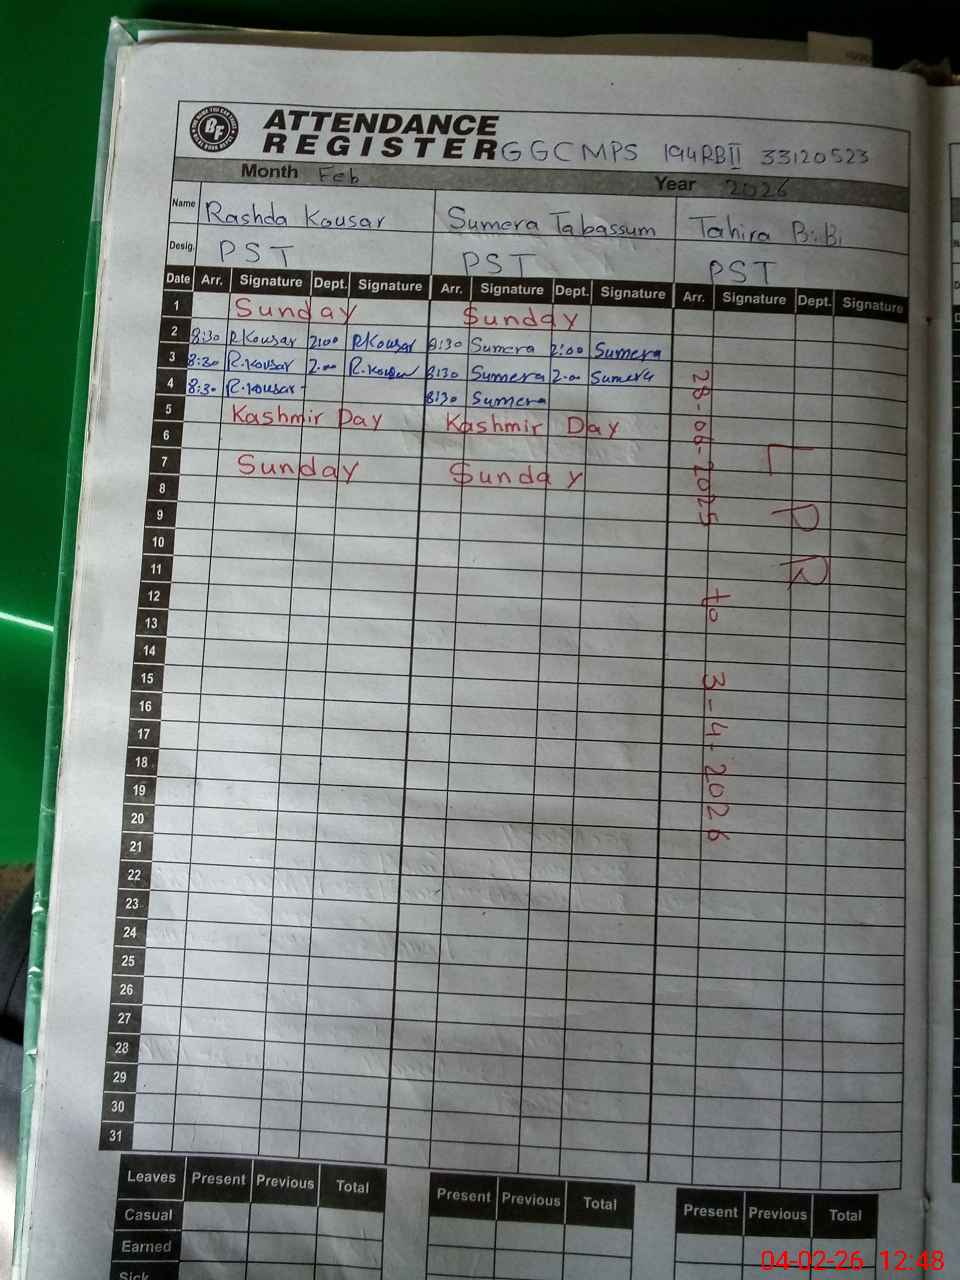 ATTENDANCE
REGISTER GGCMPS 194RBII 33120523
Month Feb Year 2026
Name Rashda Kousar Sumera Tabassum Tahira BiBi
Desig. PST PST PST
Date Arr. Signature Dept. Signature Arr. Signature Dept. Signature Arr. Signature Dept. Signature
1 Sunday Sunday
2 8:30 RKousar 2:00 RKousar 8:30 Sumera 2:00 Sumera
3 8:30 R.Kousar 2.00 R.Kousar 8:30 Sumera 2.00 Sumera
4 8:30 R.Kousar 8:30 Sumera
5 Kashmir Day Kashmir Day
6
7 Sunday Sunday
8
9
10
11
12
13
14
15
16
17
18
19
20
21
22
23
24
25
26
27
28
29
30
31
28-06-2025 to 3-4-2026
LPR
Leaves Present Previous Total Present Previous Total Present Previous Total
Casual
Earned
Sick
04-02-26 12:48